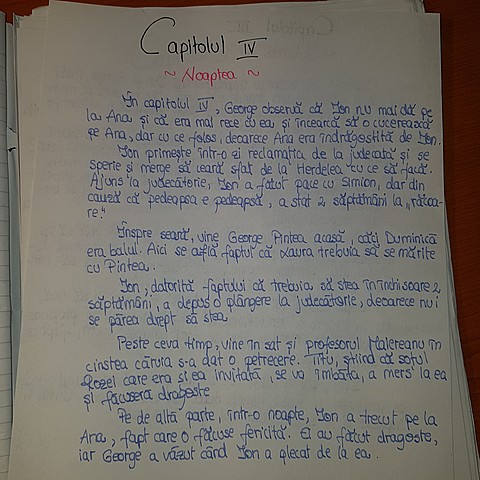 Capitolul IV
~ Noaptea ~
În capitolul IV, George observă că Ion nu mai dă pe
la Ana și că era mai rece cu ea, și încearcă să o cucerească
pe Ana, dar cu ce folos, deoarece Ana era îndrăgostită de Ion.
Ion primește într-o zi reclamația de la judecată și se
sperie și merge să ceară sfat de la Herdelea "cu ce să facă.
Ajuns la judecătorie, Ion a făcut pace cu Simion, dar din
cauză că pedeapsa e pedeapsă, a stat 2 săptămâni la „răcoa-
re."
Înspre seară, vine George Pintea acasă, căci Duminică
era balul. Aici se află faptul că Laura trebuia să se mărite
cu Pintea.
Ion, datorită faptului că trebuia să stea în închisoare 2
săptămâni, a depus o plângere la judecătorie, deoarece nu i
se părea drept să stea
Peste ceva timp, vine în sat și profesorul Malereanu în
cinstea căruia s-a dat o petrecere. Titu, știind că soțul
Rozei care era și ea invitată, se va îmbăta, a mers la ea
și făcuseră dragoste
Pe de altă parte, într-o noapte, Ion a trecut pe la
Ana, fapt care o făcuse fericită. Ei au făcut dragoste,
iar George a văzut când Ion a plecat de la ea.